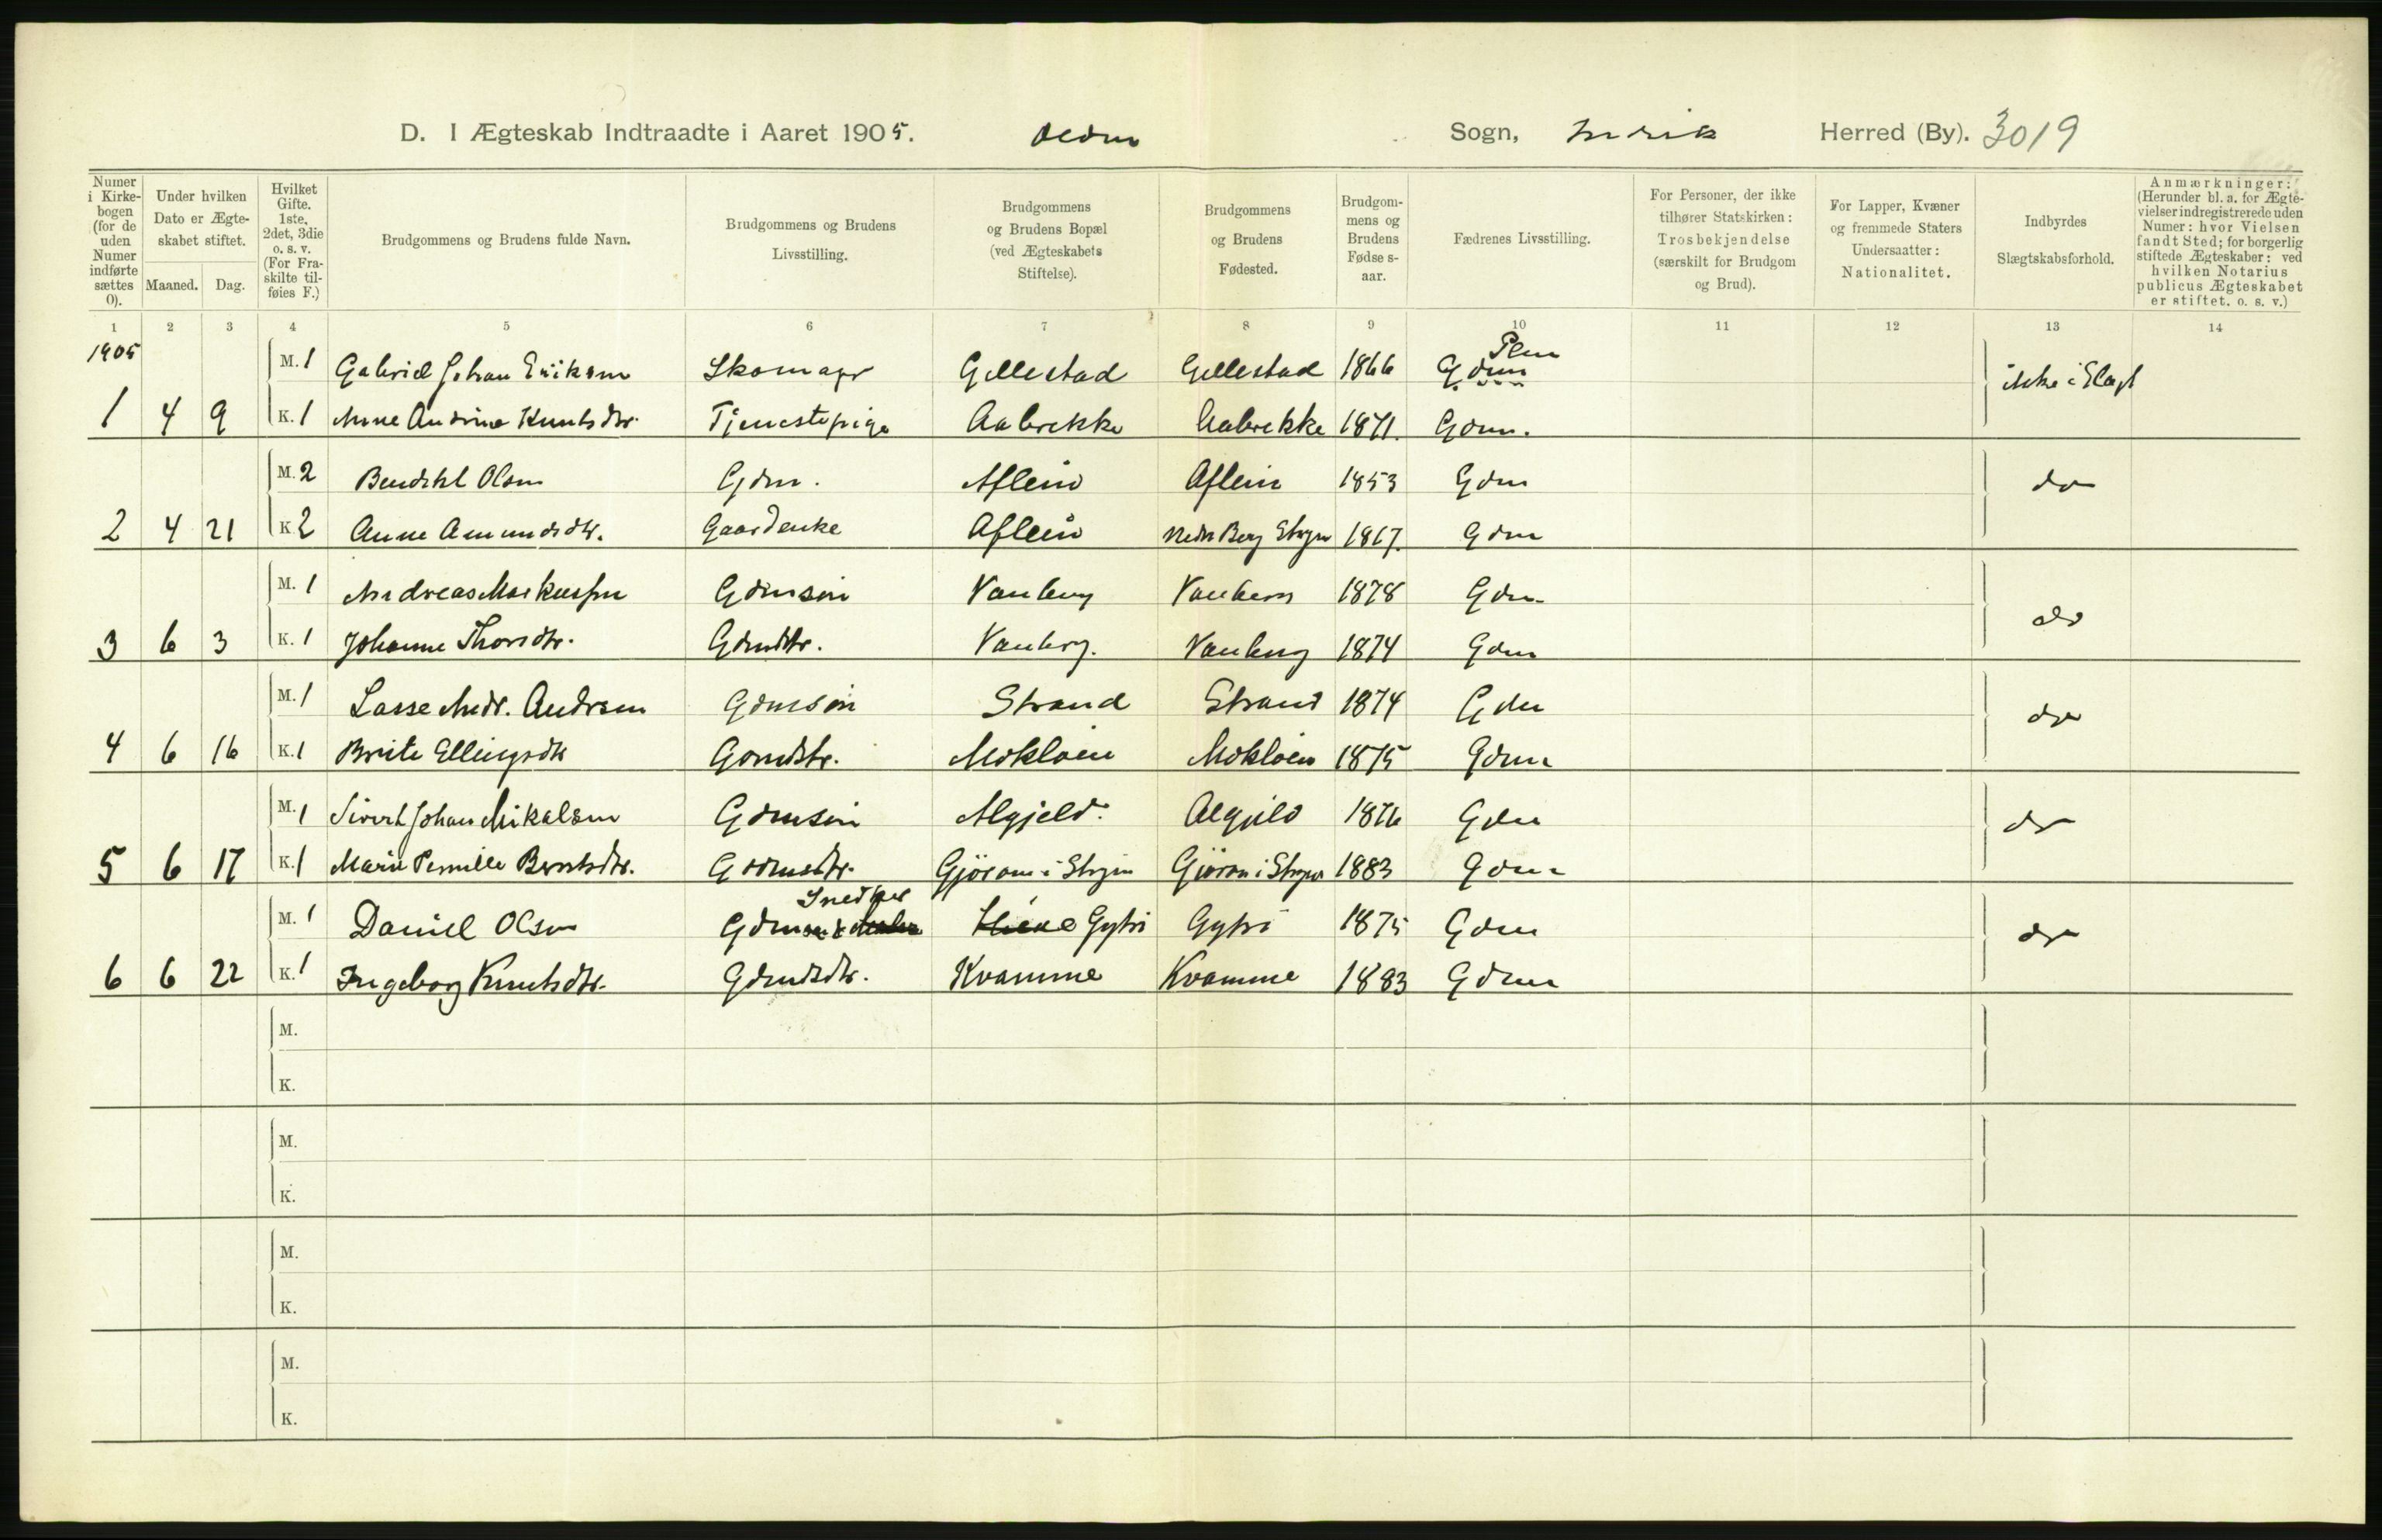 D. I Ægteskab Indtraadte i Aaret 1905. Olden Sogn, Indvik Herred (By). 3019
Numer i Kirkebogen (for de uden Numer indførte sættes 0).
Under hvilken Dato er Ægteskabet stiftet.
Maaned. Dag.
Hvilket Gifte. 1ste, 2det, 3die o. s. v. (For Fraskilte tilføies F.)
Brudgommens og Brudens fulde Navn.
Brudgommens og Brudens Livsstilling.
Brudgommens og Brudens Bopæl (ved Ægteskabets Stiftelse).
Brudgommens og Brudens Fødested.
Brudgommens og Brudens Fødse s-aar.
Fædrenes Livsstilling.
For Personer, der ikke tilhører Statskirken: Trosbekjendelse (særskilt for Brudgom og Brud).
For Lapper, Kvæner og fremmede Staters Undersaatter: Nationalitet.
Indbyrdes Slægtskabsforhold.
Anmærkninger: (Herunder bl. a. for Ægtevielser indregistrerede uden Numer: hvor Vielsen fandt Sted; for borgerlig stiftede Ægteskaber: ved hvilken Notarius publicus Ægteskabet er stiftet. o. s. v.)
1 2 3 4 5 6 7 8 9 10 11 12 13 14
1905
M. 1 Gabriel Johan Eriksen Skomager Gellestad Gellestad 1866 Gdm ikke i Slægt
1 4 9 K. 1 Anne Andrine Knutsdtr. Tjenestepige Aabrekke Aabrekke 1871. Gdm.
M. 2 Bendikt Olsen Gdm. Aflein Aflein 1853 Gdm do
2 4 21 K 2 Anne Amundsdtr. Gaardenke Aflein Nedre Berg Stryn 1867. Gdm
M. 1 Andreas Markussen Gdmsøn Vanberg Vanberg 1878 Gdm do
3 6 3 K. 1 Johanne Thorsdtr. Gdmdtr. Vanberg. Vanberg 1874 Gdm
M. 1 Lasse Andr. Andrsen Gdmsøn Strand Strand 1874 Gdm do
4 6 16 K. 1 Brite Ellingsdtr Gdmdtr. Mokløin Mokløin 1875 Gdm
M. 1 Sivert Johan Mikalsen Gdmsøn Algjeld. Algjeld 1876 Gdm do
5 6 17 K. 1 Marie Pernille Berntsdtr. Gdmsdtr. Gjöram i Stryn Gjöram i Stryn 1883 Gdm
Snedker
M. 1 Daniel Olsen Gdmsøn & Gytri Gytri 1875 Gdm do
6 6 22 K. 1 Ingeborg Knutsdtr. Gdmdsdtr. Kvamme Kvamme 1883 Gdm
M.
K.
M.
K.
M.
K.
M.
K.